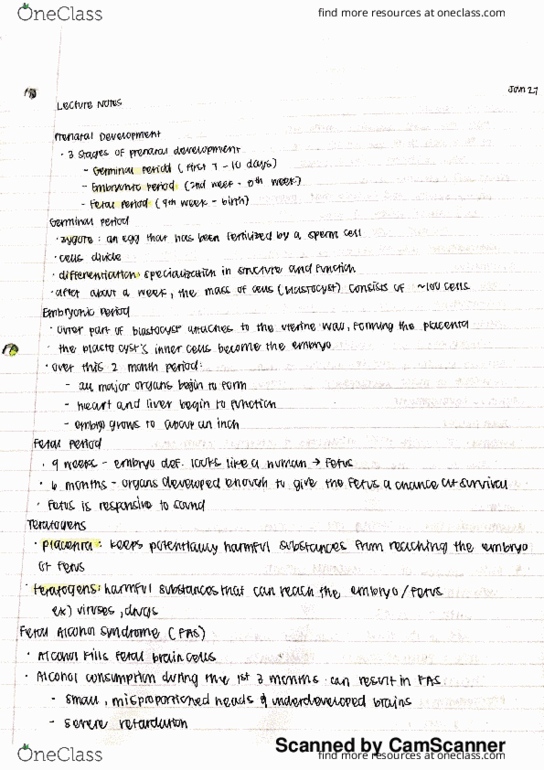 OneClass
find more resources at oneclass.com
Jan 27
Lecture Notes
Prenatal Development
· 3 stages of prenatal development
- Germinal period (first 7-10 days)
- Embryonic period (2nd week - 8th week)
- Fetal period (9th week - birth)
Germinal period
· zygote: an egg that has been fertilized by a sperm cell
· cells divide
· differentiation: specialization in structure and function
· after about a week, the mass of cells (blastocyst) consists of ~100 cells
Embryonic Period
· outer part of blastocyst attaches to the uterine wall, forming the placenta
· the blastocyst's inner cells become the embryo
· over this 2 month period:
- all major organs begin to form
- heart and liver begin to function
- embryo grows to about an inch
Fetal Period
· 9 weeks - embryo def. looks like a human → fetus
· 6 months - organs developed enough to give the fetus a chance at survival
· fetus is responsive to sound
Teratogens
· placenta: keeps potentially harmful substances from reaching the embryo
or fetus
· teratogens: harmful substances that can reach the embryo/fetus
ex) viruses, drugs
Fetal Alcohol Syndrome (FAS)
· Alcohol kills fetal brain cells
· Alcohol consumption during the 1st 3 months can result in FAS
- small, misproportioned heads & underdeveloped brains
- severe retardation
Scanned by CamScanner
OneClass
find more resources at oneclass.com